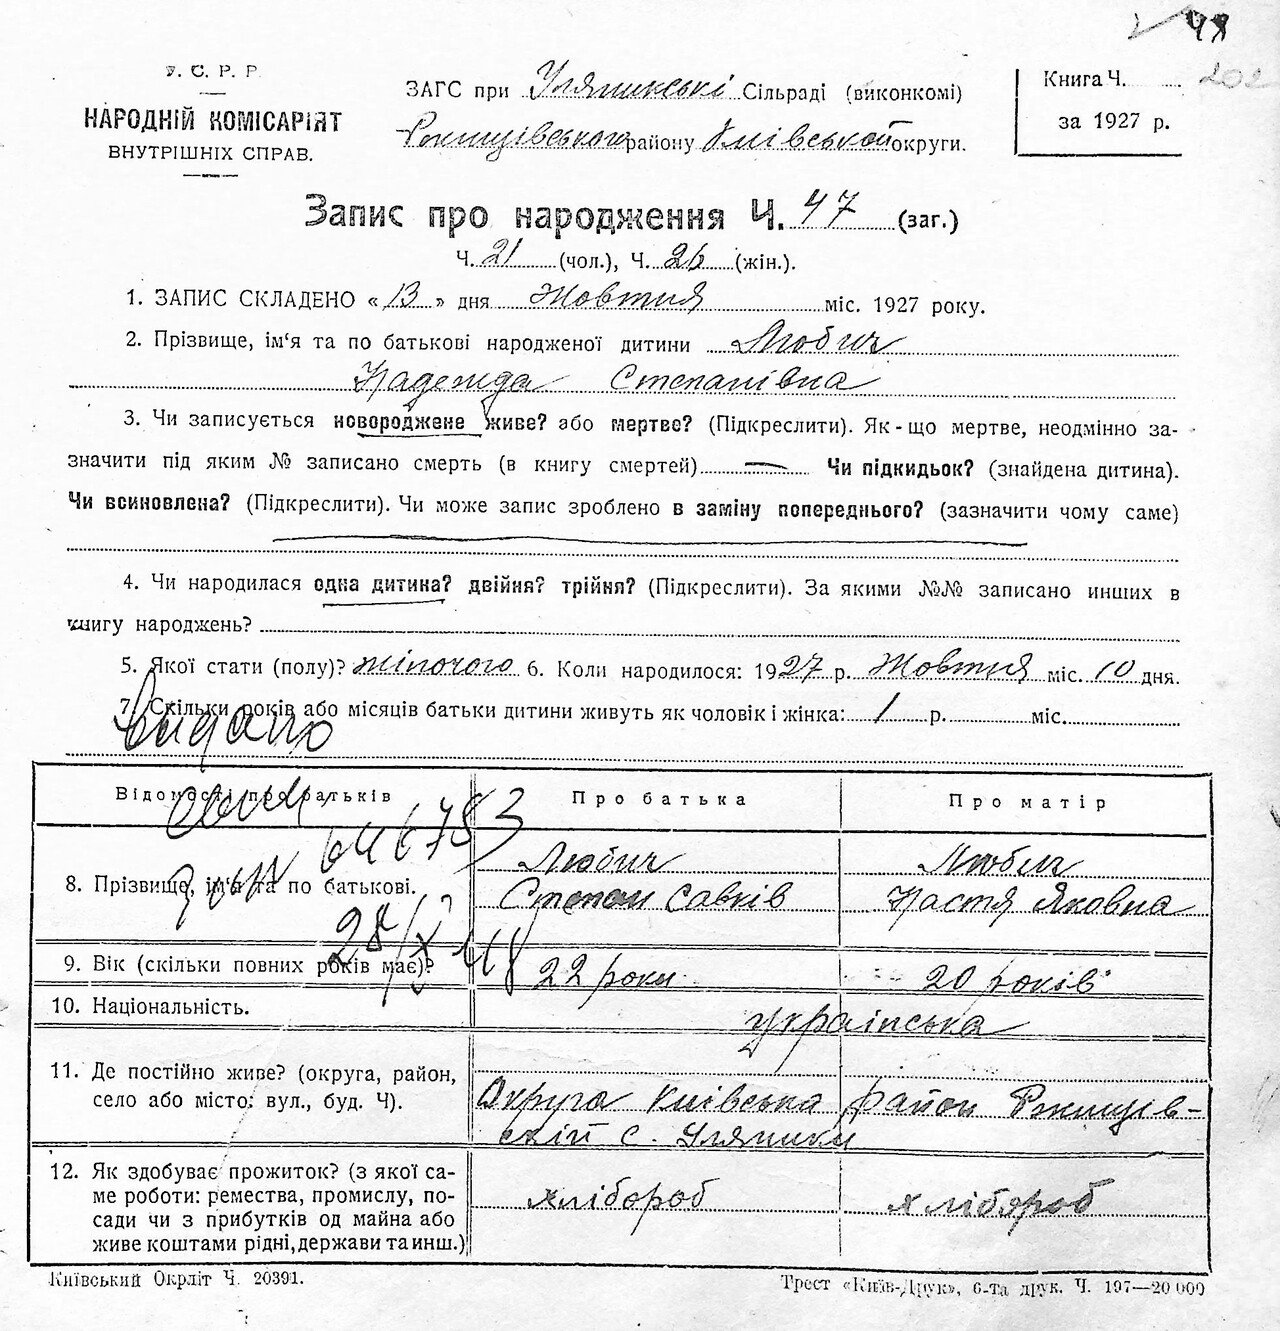 48
202
У. С. Р. Р.
НАРОДНІЙ КОМІСАРІЯТ
ВНУТРІШНІХ СПРАВ.
ЗАГС при Уляникські Сільраді (виконкомі)
Ржищівського району Київськой округи.
Книга Ч.
за 1927 р.
Запис про народження Ч. 47 (заг.)
Ч. 21 (чол.), Ч. 26 (жін.).
1. ЗАПИС СКЛАДЕНО «13» дня Жовтня міс. 1927 року.
2. Прізвище, ім'я та по батькові народженої дитини Любич
Надежда Степанівна
3. Чи записується новороджене живе? або мертве? (Підкреслити). Як-що мертве, неодмінно за-
значити під яким № записано смерть (в книгу смертей) — Чи підкидьок? (знайдена дитина).
Чи всиновлена? (Підкреслити). Чи може запис зроблено в заміну попереднього? (зазначити чому саме)
4. Чи народилася одна дитина? двійня? трійня? (Підкреслити). За якими №№ записано инших в
книгу народжень?
5. Якої стати (полу)? жіночого 6. Коли народилося: 1927 р. Жовтня міс. 10 дня.
7. Скільки років або місяців батьки дитини живуть як чоловік і жінка: 1 р. міс.
Видано
646783
28/X 48
Відомості про батьків Про батька Про матір
8. Прізвище, ім'я та по батькові.
Любич Любич
Степан Савків Настя Яковна
9. Вік (скільки повних років має)? 22 роки 20 років
10. Національність. українська
11. Де постійно живе? (округа, район,
село або місто: вул., буд. Ч).
Округа Київська район Ржищів-
скій с. Уляники
12. Як здобуває прожиток? (з якої са-
ме роботи: ремества, промислу, по-
сади чи з прибутків од майна або
живе коштами рідні, держави та инш.)
хлібороб хлібороб
Київський Окрліт Ч. 20391.
Трест «Київ-Друк», 6-та друк. Ч. 197—20 000